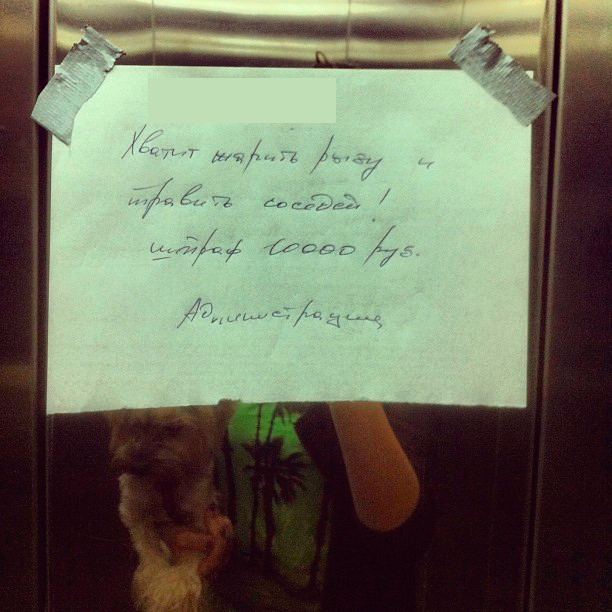 Хватит жарить рыбу и
травить соседей!
штраф 10000 руб.
Администрация